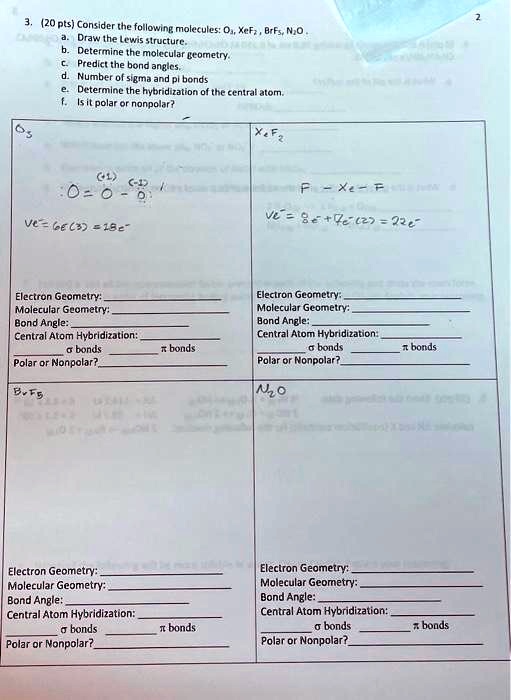 2
3. (20 pts) Consider the following molecules: O₃, XeF₂ , BrF₅, N₂O .
a. Draw the Lewis structure.
b. Determine the molecular geometry.
c. Predict the bond angles.
d. Number of sigma and pi bonds
e. Determine the hybridization of the central atom.
f. Is it polar or nonpolar?
O₃
(+1) (-1)
:O = O - O:
Ve⁻= 6e(3) = 18e⁻
Electron Geometry:
Molecular Geometry:
Bond Angle:
Central Atom Hybridization:
σ bonds π bonds
Polar or Nonpolar?
XeF₂
F - Xe - F
Ve⁻= 8e⁻ + 7e⁻(2) = 22e⁻
Electron Geometry:
Molecular Geometry:
Bond Angle:
Central Atom Hybridization:
σ bonds π bonds
Polar or Nonpolar?
BrF₅
Electron Geometry:
Molecular Geometry:
Bond Angle:
Central Atom Hybridization:
σ bonds π bonds
Polar or Nonpolar?
N₂O
Electron Geometry:
Molecular Geometry:
Bond Angle:
Central Atom Hybridization:
σ bonds π bonds
Polar or Nonpolar?